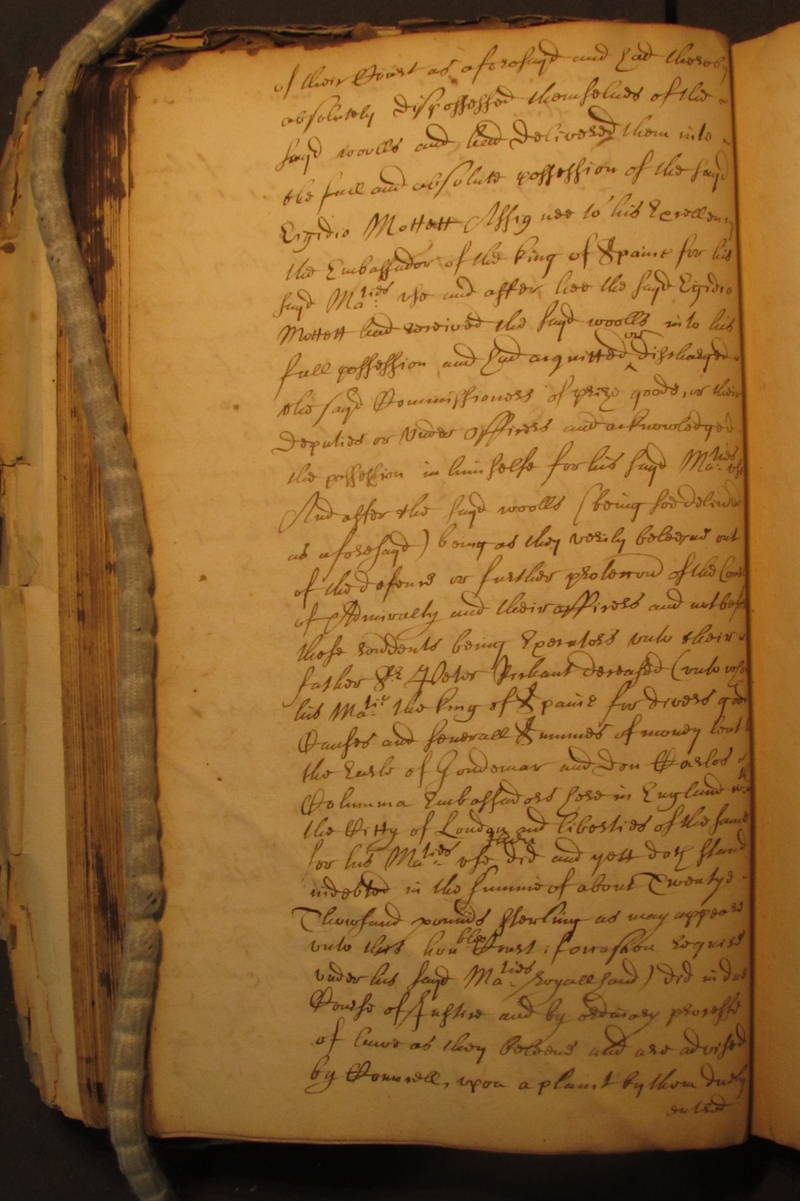 of their Court as aforesayd and had thereby
absolutely dispossessed themselues of the
sayd woolls and had deliuered them into
the full and absolute possession of the sayd
Egidio Mottett Assignee to his Excellency
the Embassador of the king of Spaine for his
sayd Ma:ties vse and after hee the sayd Egidio
Mottett had receiued the sayd woolls into his
full possession and had acquitted or discharged
the sayd Commissioners of prize goods, or their
deputies or vnder officers and acknowledged
the possession in himselfe for his sayd Ma:ties vse
And after the sayd woolls (being soe deliuered
as aforesayd) being as they verily beleeue out
of the defence or further protection of the Court
of Admiralty and their officers and not before
these rondents being Executors vnto their
father Sr Peter Richaut deceased (vnto
his Ma:tie the king of Spaine for divers good
Causes and seuerall Summes of money lent
the Earle of Gondemar and Don Carlos de
Columma Embassadors here in England
the Citty of London and liberties of the same
for his Ma:ties vse did and yett doth stand
indebted in the summe of about Twentye
Thowsand pounds sterling as may appeare
vnto this honble Court if occasion require
vnder his sayd Ma:ties royall hand) did in due
Course of Justice and by ordinary processe
of lawe as they beleeue and are advised
by Councell, vpon a plaint by them duely
entred